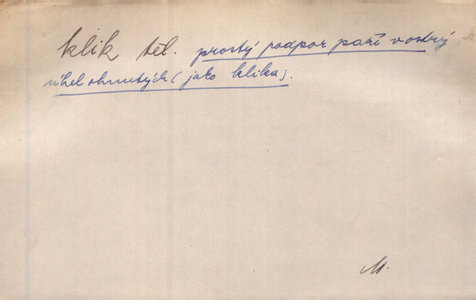 klik těl. prostý podpor paží v ostrý
úhel ohnutých (jako klika).
M.